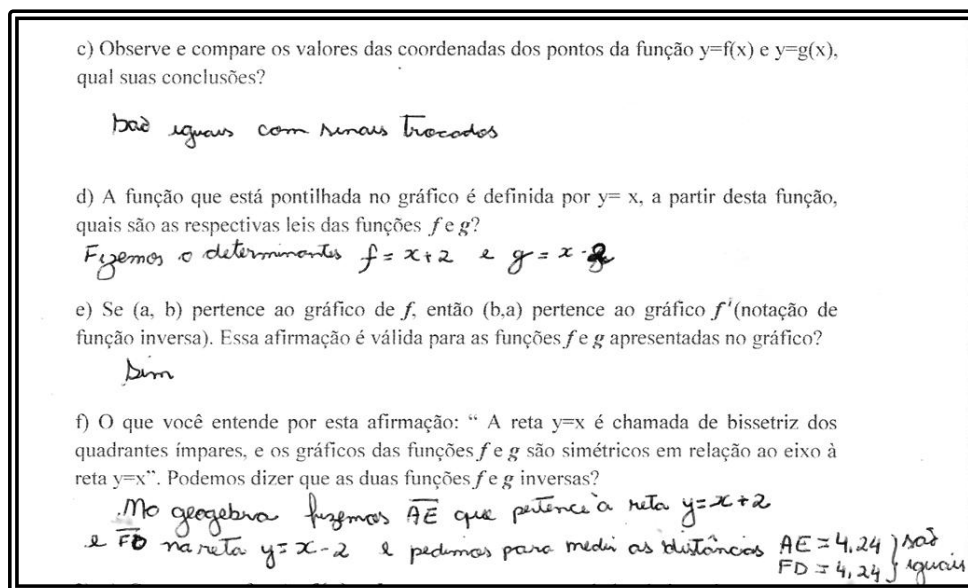 c) Observe e compare os valores das coordenadas dos pontos da função y=f(x) e y=g(x),
qual suas conclusões?
São iguais com sinais trocados
d) A função que está pontilhada no gráfico é definida por y= x, a partir desta função,
quais são as respectivas leis das funções f e g?
Fizemos o determinantes f = x+2 e g = x-2
e) Se (a, b) pertence ao gráfico de f, então (b,a) pertence ao gráfico f'(notação de
função inversa). Essa afirmação é válida para as funções f e g apresentadas no gráfico?
Sim
f) O que você entende por esta afirmação: “ A reta y=x é chamada de bissetriz dos
quadrantes ímpares, e os gráficos das funções f e g são simétricos em relação ao eixo à
reta y=x”. Podemos dizer que as duas funções f e g inversas?
No geogebra fizemos AE que pertence a reta y=x+2
e FD na reta y=x-2 e pedimos para medir as distâncias AE=4,24 } são
FD=4,24 } iguais